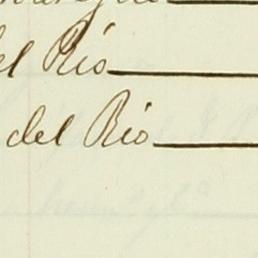 el Rio
del Rio